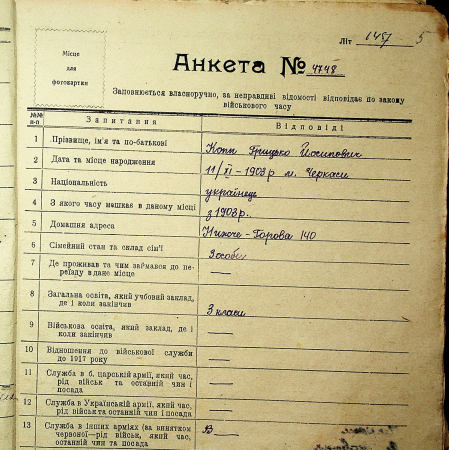 Літ 1457 5
Місце
для
фотокартки
Анкета № 4748
Заповнюється власноручно, за неправдиві відомості відповідає по закону
військового часу
№№ п-п Запитання Відповіді
1 Прізвище, ім'я та по-батькові Копи Грицько Йосипович
2 Дата та місце народження 11/XI - 1903 р м. Черкаси
3 Національність українець
4 З якого часу мешкає в даному місці з 1903 р.
5 Домашня адреса Нижче-Горова 140
6 Сімейний стан та склад сім'ї 3 особи
7 Де проживав та чим займався до пе-
реїзду в дане місце —
8 Загальна освіта, який учбовий заклад,
де і коли закінчив 3 класи
9 Військова освіта, який заклад, де і
коли закінчив —
10 Відношення до військової служби
до 1917 року —
11 Служба в б. царській армії, який час,
рід військ та останній чин і
посада —
12 Служба в Українській армії, який час,
рід військ та останній чин і посада —
13 Служба в інших арміях (за винятком
червоної—рід військ, який час,
останній чин та посада В —